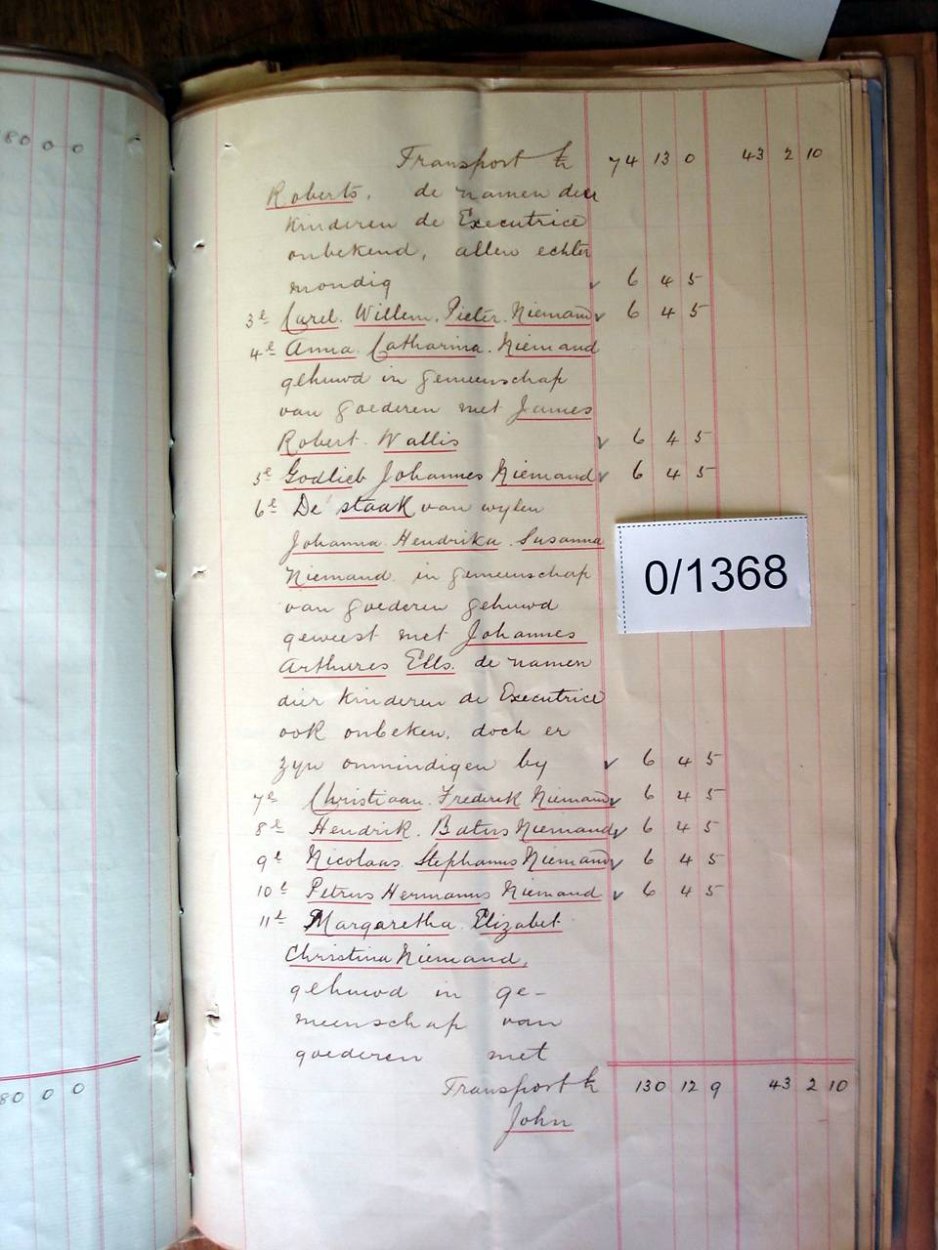 80 0 0
Transport £ 74 13 0 43 2 10
Roberts, de namen dier
kinderen de Executrice
onbekend, allen echter
mondig ✓ 6 4 5
3e Carel Willem Pieter Niemand ✓ 6 4 5
4e Anna Catharina Niemand
gehuwd in gemeenschap
van goederen met James
Robert Wallis ✓ 6 4 5
5e Godlieb Johannes Niemand ✓ 6 4 5
6e De staak van wylen
Johanna Hendrika Susanna
Niemand in gemeenschap
van goederen gehuwd
geweest met Johannes
Arthures Ells. de namen
dier kinderen de Executrice
ook onbeken, doch er
zyn onmindigen by ✓ 6 4 5
7e Christiaan Frederik Niemand ✓ 6 4 5
8e Hendrik Niemand ✓ 6 4 5
9e Nicolaas Stephanus Niemand ✓ 6 4 5
10e Petrus Hermanus Niemand ✓ 6 4 5
11e Margaretha Elizabet
Christina Niemand,
gehuwd in ge-
meenschap van
goederen met
80 0 0
Transport £ 130 12 9 43 2 10
John
0/1368